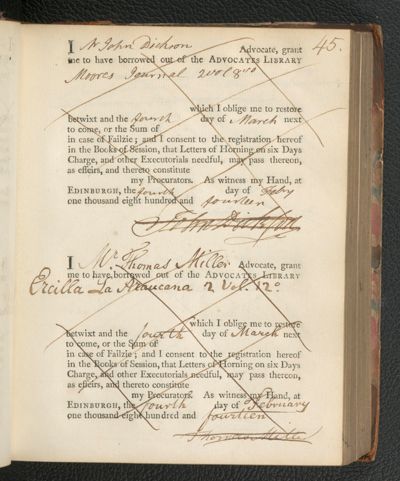 45.
I Mr John Dickson Advocate, grant
me to have borrowed out of the ADVOCATES LIBRARY
Moores Journal 2 vol 8vo
which I oblige me to restore
betwixt and the fourth day of March next
to come, or the Sum of
in case of Failzie; and I consent to the registration hereof
in the Books of Session, that Letters of Horning on six Days
Charge, and other Executorials needful, may pass thereon,
as effeirs, and thereto constitute
my Procurators. As witness my Hand, at
EDINBURGH, the fourth day of Feby
one thousand eight hundred and fourteen
John Dickson
I Mr. Thomas Miller Advocate, grant
me to have borrowed out of the ADVOCATES LIBRARY
Ercilla La Araucana 2 Vol. 12o
which I oblige me to restore
betwixt and the fourth day of March next
to come, or the Sum of
in case of Failzie; and I consent to the registration hereof
in the Books of Session, that Letters of Horning on six Days
Charge, and other Executorials needful, may pass thereon,
as effeirs, and thereto constitute
my Procurators. As witness my Hand, at
EDINBURGH, the fourth day of February
one thousand eight hundred and fourteen
Thomas Miller